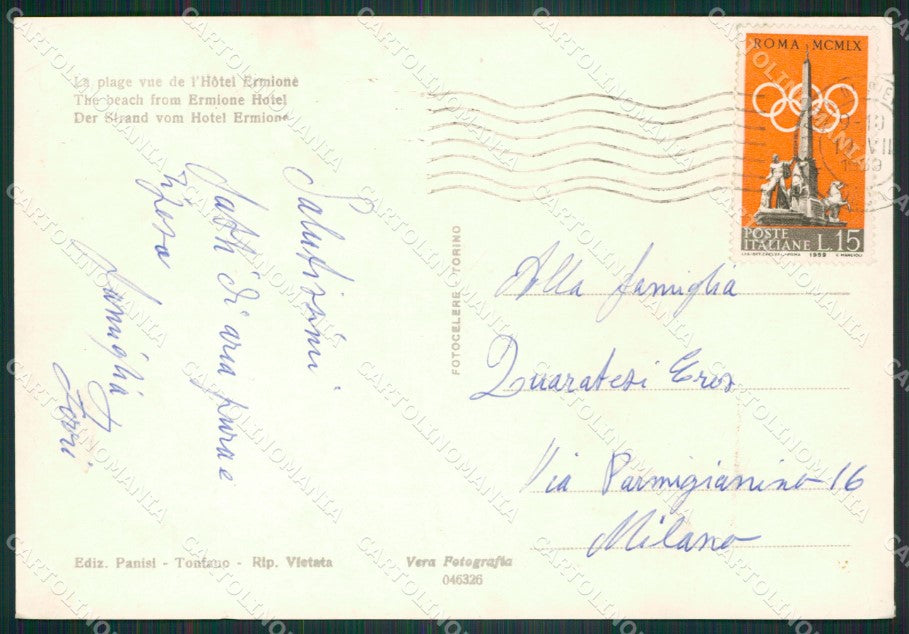 La plage vue de l'Hôtel Ermione
The beach from Ermione Hotel
Der Strand vom Hotel Ermione
Salutissimi
fatti di aria pura e
riposo
famiglia
Ferri
FOTOCELERE - TORINO
ROMA MCMLX
POSTE
ITALIANE L.15
1959
Alla famiglia
Quaratesi Eros
Via Parmigianino 16
Milano
Ediz. Panisi - Tonfano - Rip. Vietata
Vera Fotografia
046326
CARTOLINOMANIA